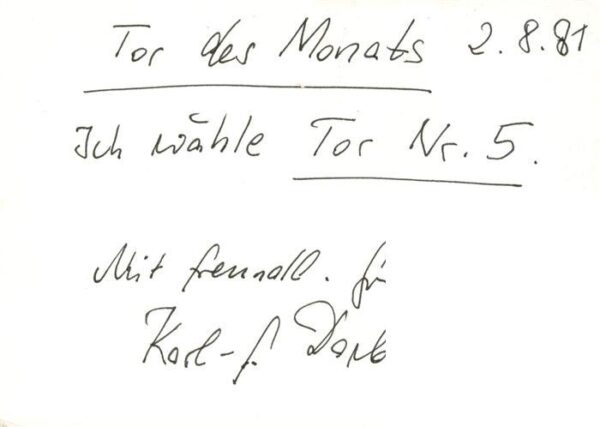 Tor des Monats 2.8.81
Ich wähle Tor Nr. 5.
Mit freundl.
Karl-